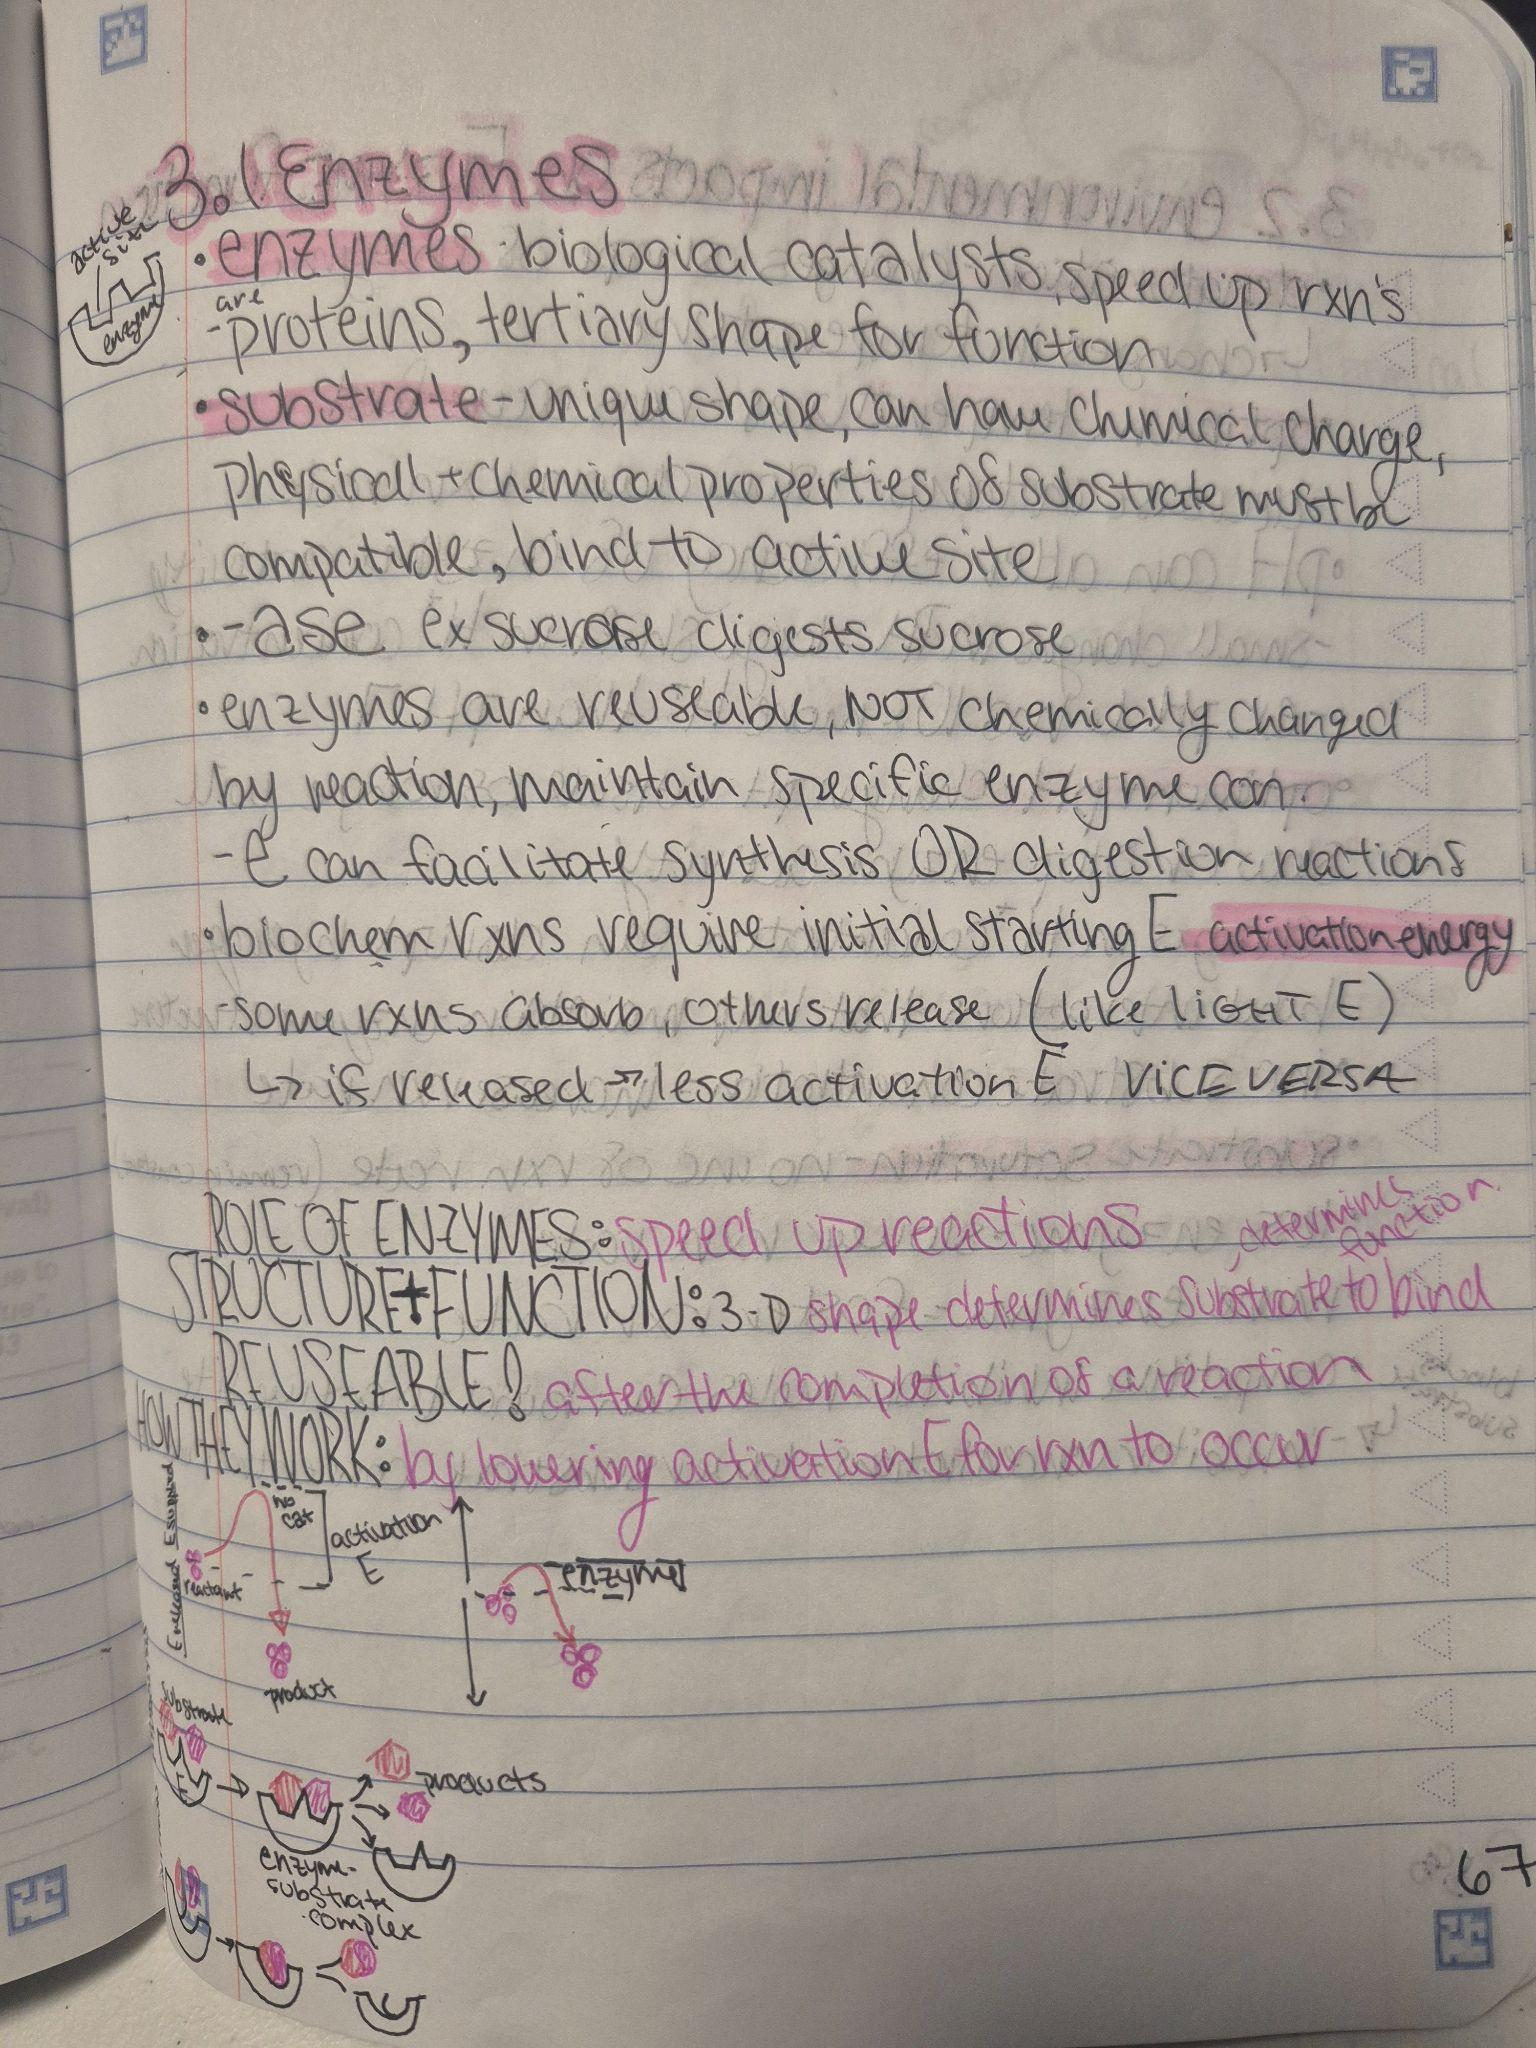 3.1 Enzymes
active
site
enzyme
• enzymes - biological catalysts, speed up rxn's
are
- proteins, tertiary shape for function
• substrate - unique shape, can have chemical charge,
physical + chemical properties of substrate must be
compatible, bind to active site
• -ase ex sucrase digests sucrose
• enzymes are reuseable, NOT chemically changed
by reaction, maintain specific enzyme con.
- e can facilitate synthesis OR digestion reactions
• biochem rxns require initial starting E activation energy
- some rxns absorb, others release (like LIGHT E)
↳ is released → less activation E VICE VERSA
ROLE OF ENZYMES: speed up reactions
, determines
function.
STRUCTURE + FUNCTION: 3-D shape determines substrate to bind
REUSEABLE! after the completion of a reaction
HOW THEY WORK: by lowering activation E for rxn to occur
no
cat
activation
E
reactant
product
E released
enzyme
substrate
E
products
enzyme-
substrate
complex
67